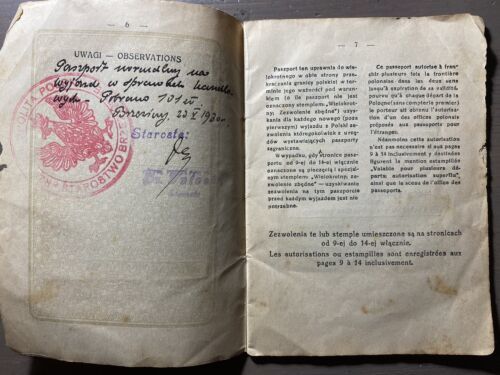 — 6 —
UWAGI — OBSERVATIONS
Paszport normalny na
wyjazd w sprawach handlo-
wych – Pobrano 101 zł
Brzeziny, 23 V 1930 r.
Starosta:
STAROSTWO BRZE
— 7 —
Paszport ten uprawnia do wie-
lokrotnego w obie strony prze-
kraczania granicy polskiej w ter-
minie jego ważności pod warun-
kiem (o ile paszport nie jest
oznaczony stemplem: "Wielokrotny;
Zezwolenie zbędne") uzyskania
przed każdego nowego (poza
pierwszym) wyjazdu z Polski zezwo-
lenia któregokolwiek z urzę-
dów wystawiających paszporty
zagraniczne.
W wypadku, gdy stronice pasz-
portu od 9-ej do 14-ej włącznie
oznaczone są pieczęcią i specjal-
nym stemplem: „Wielokrotny; ze-
zwolenie zbędne" — uzyskiwanie
zezwolenia na tym paszporcie
przed każdym wyjazdem jest nie-
potrzebne.
Ce passeport autorise à fran-
chir plusieurs fois la frontière
polonaise dans les deux sens
jusqu'à expiration de sa validité.
Pourtant à chaque départ de la
Pologne (sans compter le premier)
le porteur est obtenu l'autorisa-
tion d'un des offices polonais
préposés aux passeports pour
l'étranger.
Néanmoins cette autorisation
n'est pas necessaire si aux pages
9 à 14 inclusivement y destinées
figurent la mention estampillée
"Valable pour plusieurs dé-
parts; autorisation superflue",
ainsi que le sceau de l'office des
passeports.
Zezwolenia te lub stemple umieszczone są na stronicach
od 9-ej do 14-ej włącznie.
Les autorisations ou estampilles sont enregistrées aux
pages 9 à 14 inclusivement.